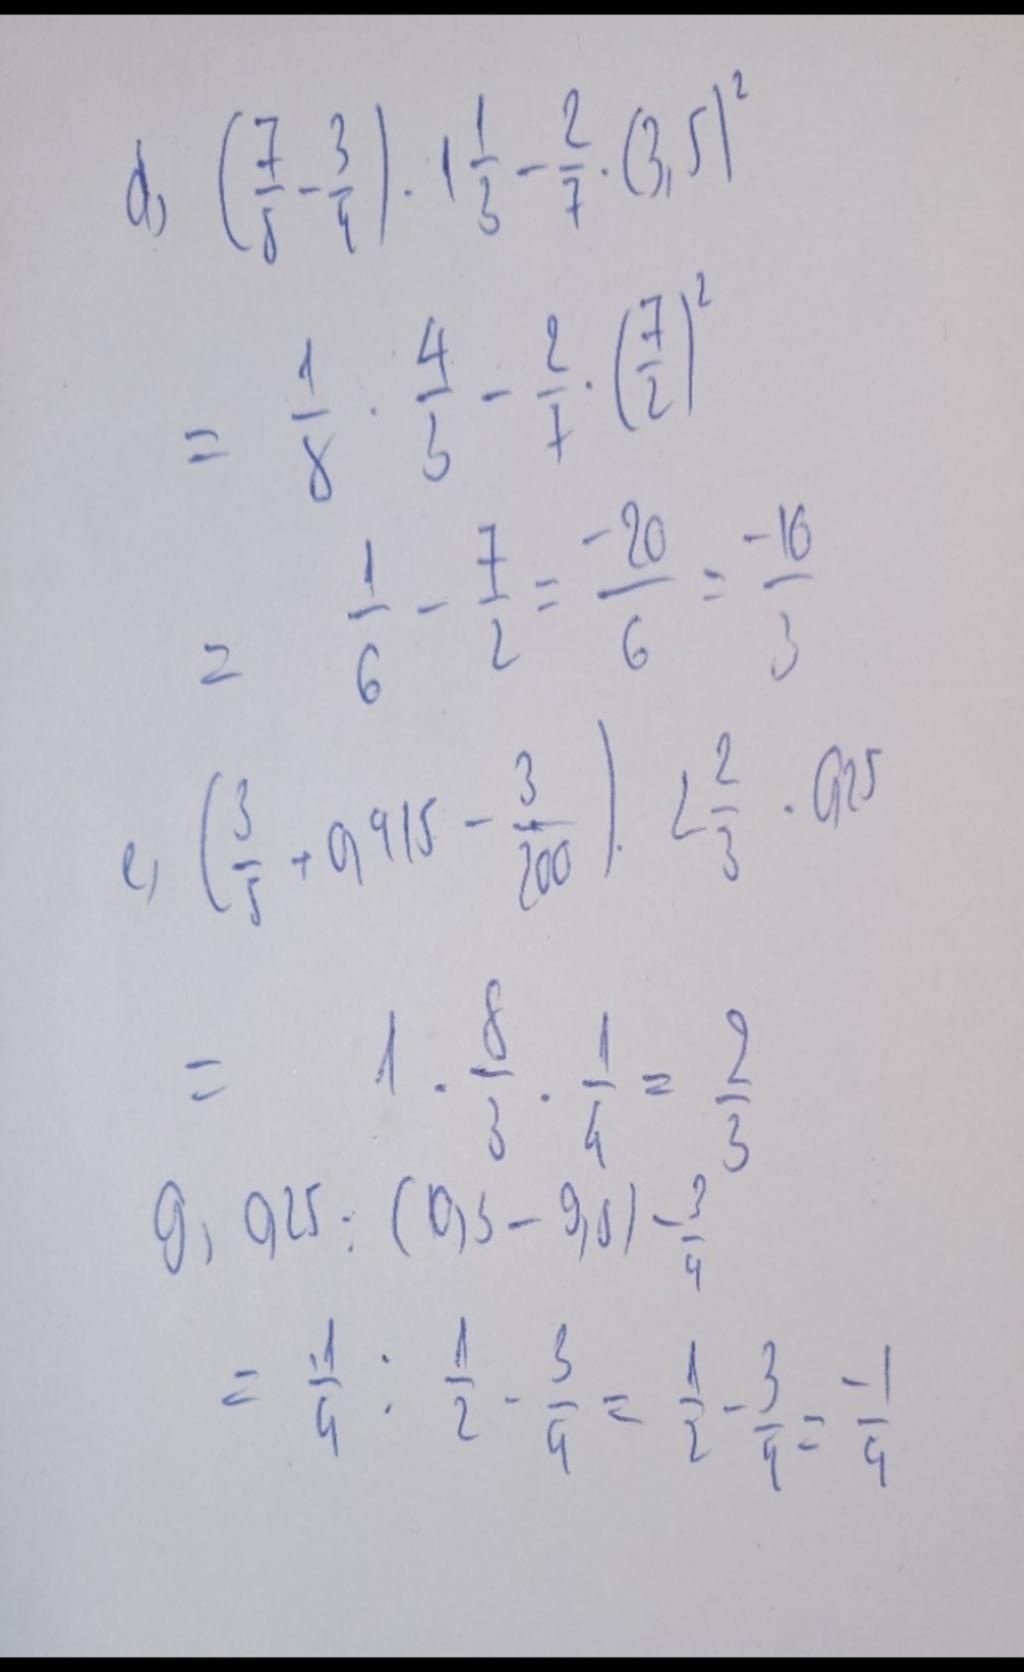 d, (7/8 - 3/4) . 1 1/3 - 2/7 . (3,5)²
= 1/8 . 4/3 - 2/7 . (7/2)²
= 1/6 - 7/2 = -20/6 = -10/3
e, (3/5 + 0,415 - 3/200) . 2 2/3 . 0,25
= 1 . 8/3 . 1/4 = 2/3
g, 0,25 : (10,3 - 9,8) - 3/4
= 1/4 : 1/2 - 3/4 = 1/2 - 3/4 = -1/4